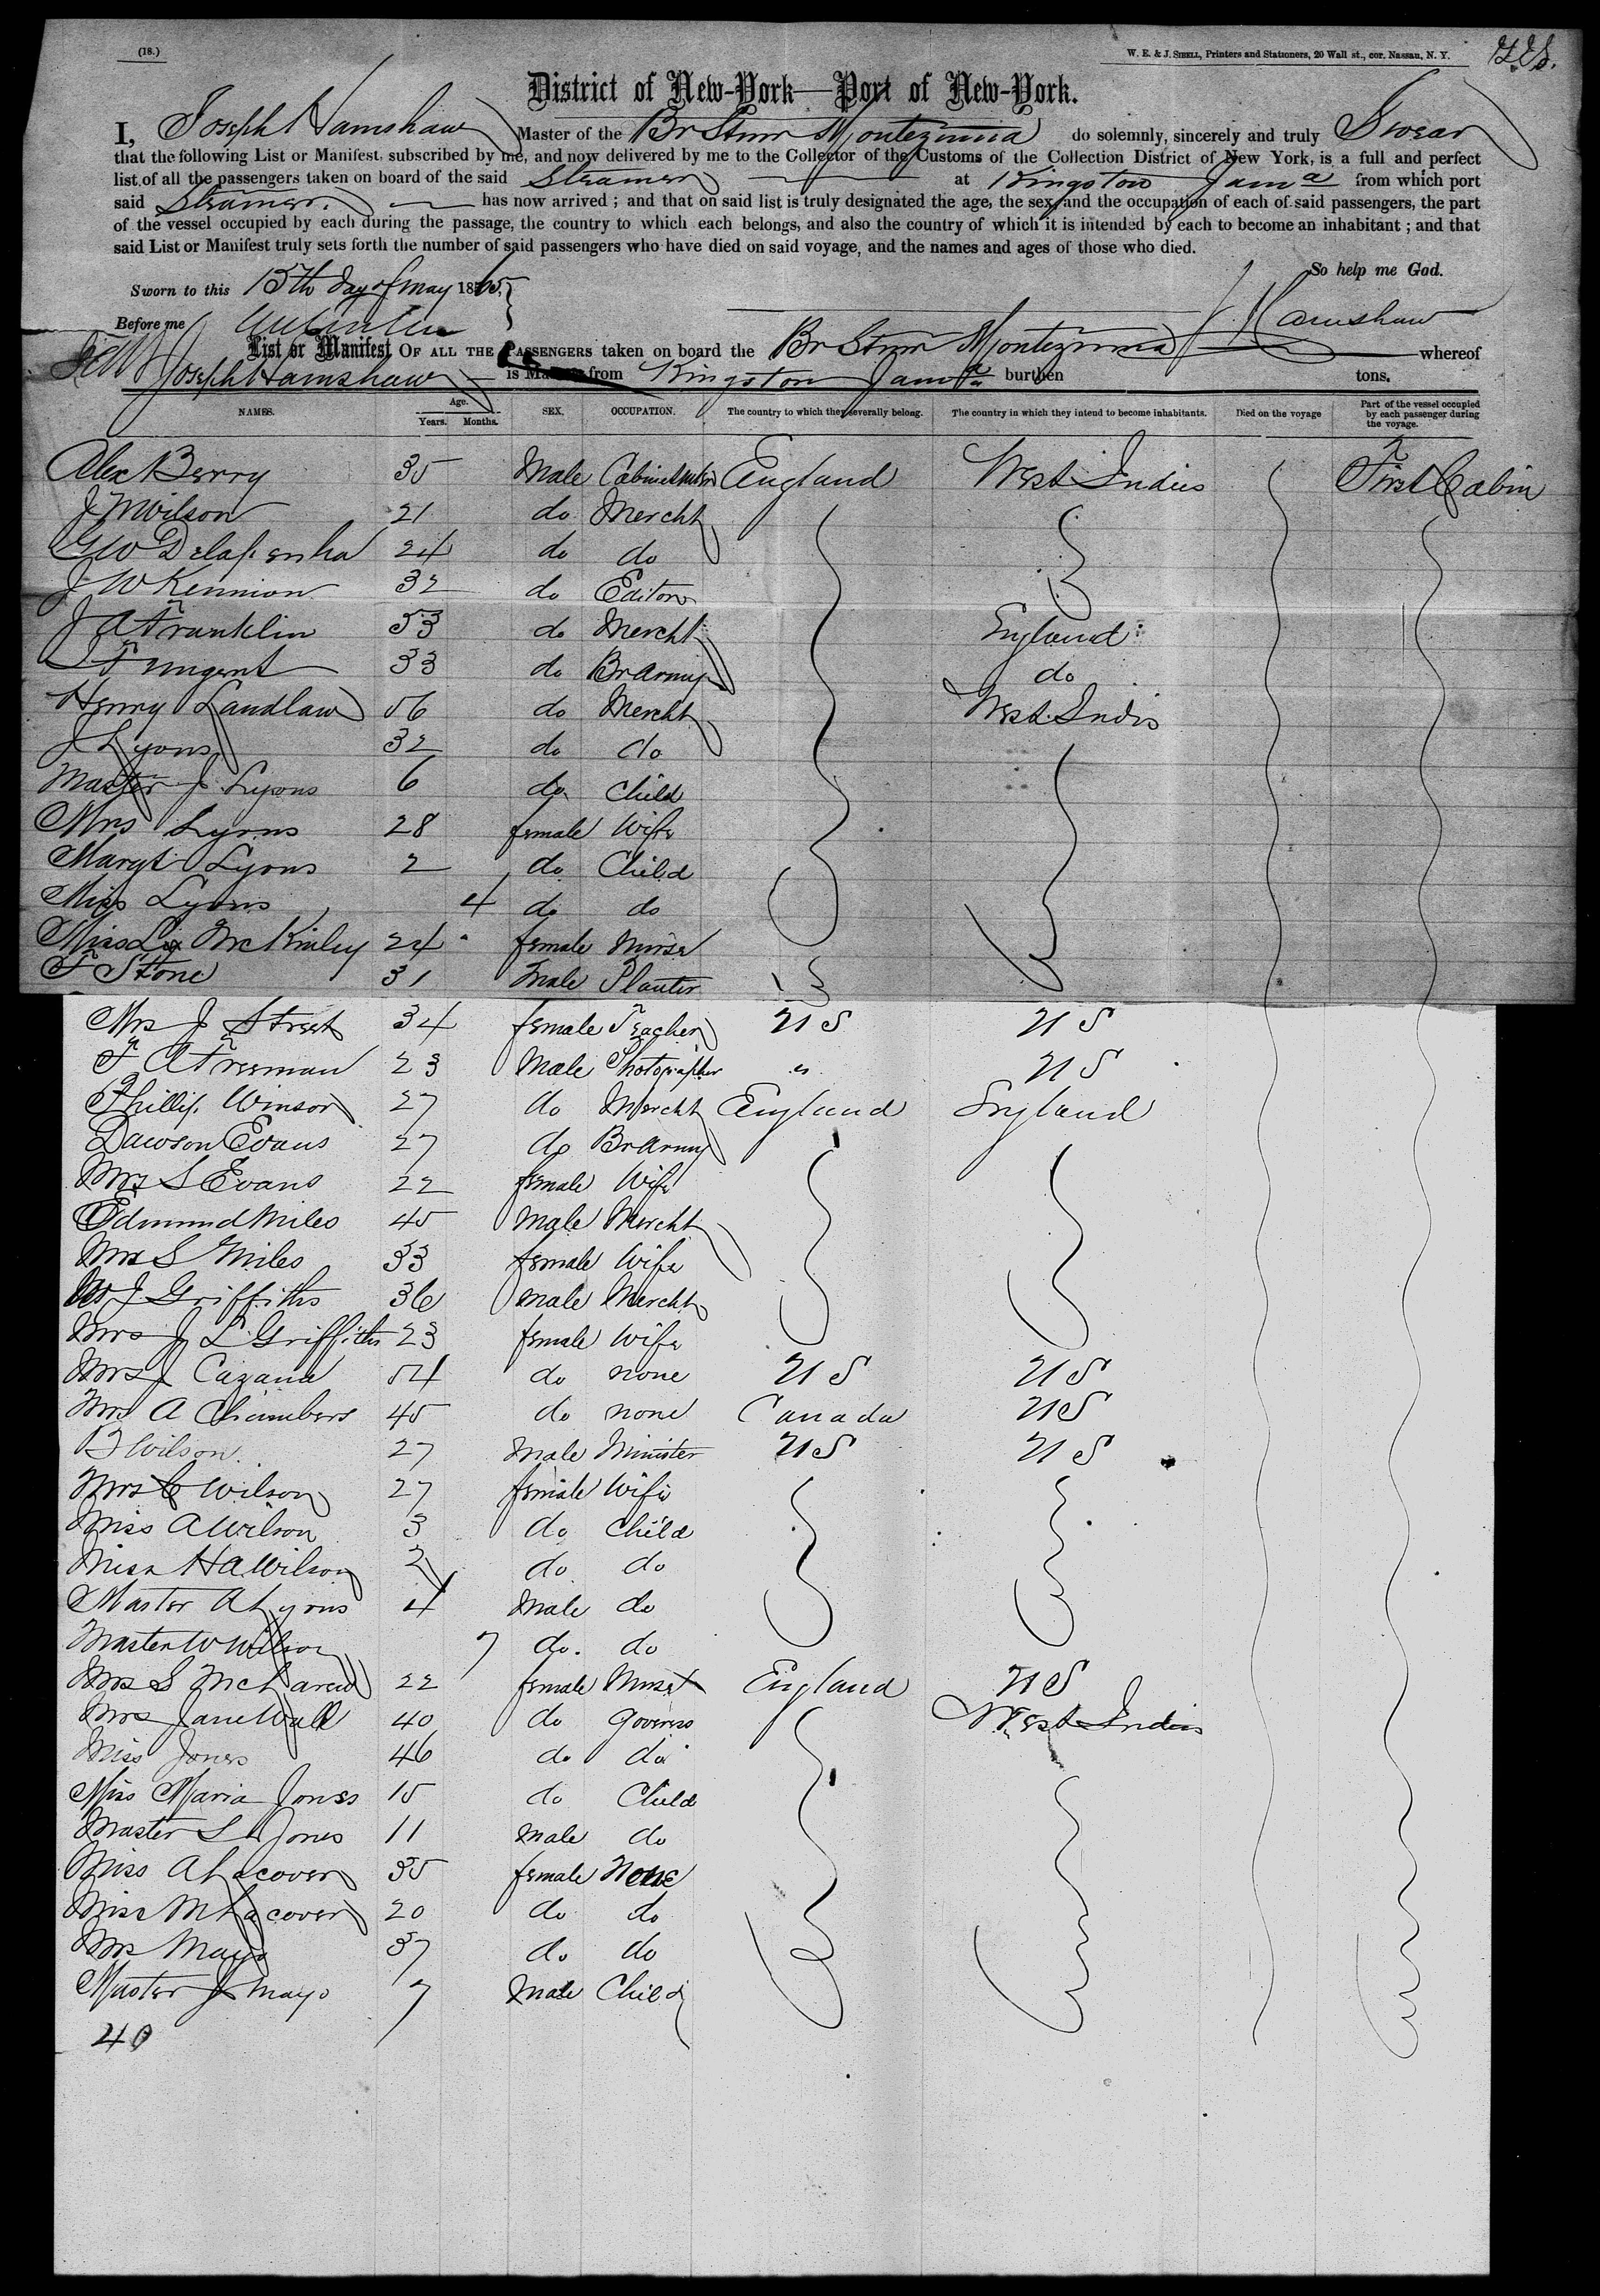 (18.)
W. E. & J. SIBELL, Printers and Stationers, 20 Wall st., cor. Nassau, N. Y.
District of New-York—Port of New-York.
I, Joseph Hamshaw Master of the Br Stmr Montezuma do solemnly, sincerely and truly Swear
that the following List or Manifest, subscribed by me, and now delivered by me to the Collector of the Customs of the Collection District of New York, is a full and perfect
list of all the passengers taken on board of the said Steamer at Kingston Jama from which port
said Steamer. has now arrived ; and that on said list is truly designated the age, the sex, and the occupation of each of said passengers, the part
of the vessel occupied by each during the passage, the country to which each belongs, and also the country of which it is intended by each to become an inhabitant ; and that
said List or Manifest truly sets forth the number of said passengers who have died on said voyage, and the names and ages of those who died.
So help me God.
Sworn to this 15th day of May 1865,
J Hamshaw
Before me
List or Manifest OF ALL THE PASSENGERS taken on board the Br Stmr Montezuma whereof
Joseph Hamshaw is Master from Kingston Jama burthen tons.
NAMES. Age. Years. Months. SEX. OCCUPATION. The country to which they severally belong. The country in which they intend to become inhabitants. Died on the voyage Part of the vessel occupied by each passenger during the voyage.
Alex Berry 35 Male Cabinetmkr England West Indies First Cabin
J M Wilson 21 do Mercht
G W Delapenha 24 do do
J W Kennion 32 do Editor
J A Franklin 53 do Mercht England
Nugent 33 do Br Army do
Henry Laudlaw 56 do Mercht West Indis
J Lyons 32 do do
Master J Lyons 6 do Child
Mrs Lyons 28 female Wife
Margt Lyons 2 do Child
Miss Lyons 4 do do
Miss McKinley 24 female Nurse
F Stone 31 Male Planter
Mrs J Street 34 female Teacher U S U S
F A Freeman 23 Male Photographer " U S
Phillip Winsor 27 do Mercht England England
Dawson Evans 27 do Br Army
Mrs S Evans 22 female Wife
Edmund Miles 45 Male Mercht
Mrs S Miles 33 female Wife
W J Griffiths 36 male Mercht
Mrs J L Griffiths 23 female Wife
Mrs J Cazana 54 do none U S U S
Mrs A Chambers 45 do none Canada U S
B Wilson. 27 Male Minister U S U S
Mrs C Wilson 27 female Wife
Miss A Wilson 3 do Child
Miss H A Wilson 2 do do
Master A Lyons 4 Male do
Master W Wilson 7 do. do
Mrs S McLaren 22 female Nurse England U S
Mrs Jane Wall 40 do Governess West Indies
Miss Jones 46 do do
Miss Maria Jones 15 do Child
Master S Jones 11 Male do
Miss A Lacover 35 female None
Miss M Lacover 20 do do
Mrs Mayo 37 do do
Master J Mayo 7 Male Child
40